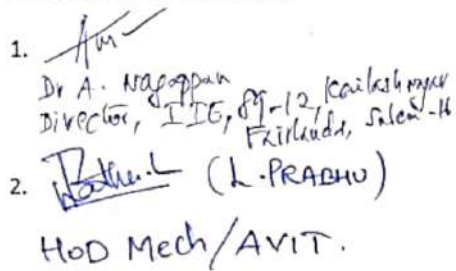 1.
Dr A. Nagappan
Director, IIE, 89-12, Kailash nagar
Fairlands, Salem -16
2. (L.PRABHU)
HOD Mech/AVIT.